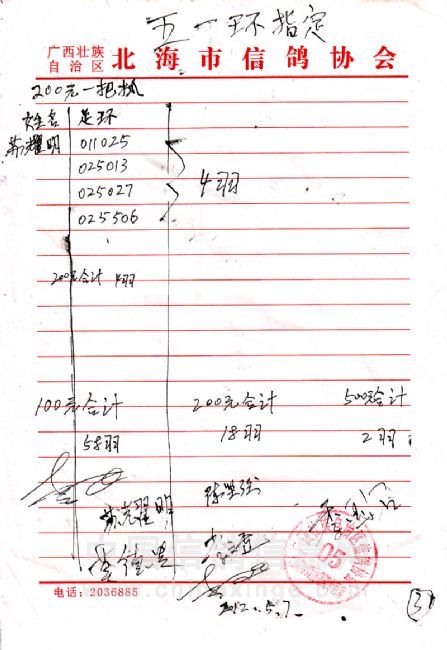 五一环指定
广西壮族
自治区
北海市信鸽协会
200元一把抓
姓名 足环
苏耀明 011025
025013
025027
025506
4羽
200元合计 4羽
100元合计 200元合计 500元合计
58羽 18羽 2羽
苏耀明
05
电话：2036885
2012.5.7.
3